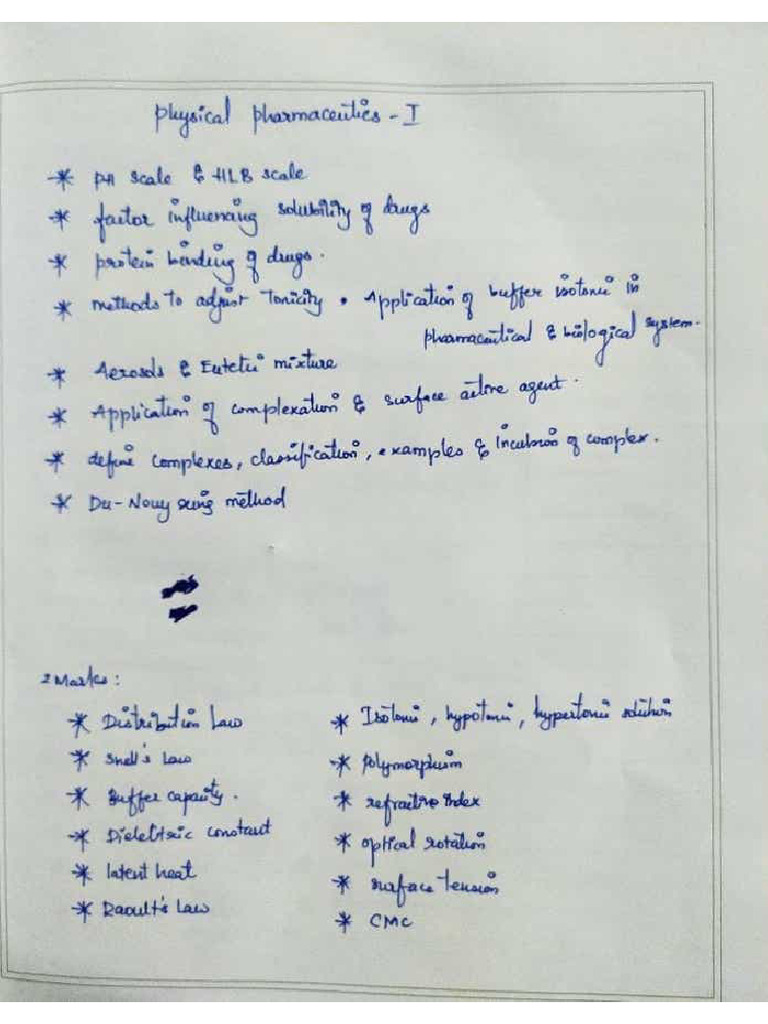 Physical pharmaceutics - I
* pH scale & HLB scale
* factor influencing solubility of drugs
* protein binding of drugs.
* methods to adjust Tonicity • Application of buffer isotonic in
pharmaceutical & biological system.
* Aerosols & Eutetic mixture
* Application of complexation & surface active agent.
* define complexes, classification, examples & Inculsion of complex.
* Du-Nouy ring method
2 Marks:
* Distribution Law
* Snell's Law
* Buffer capacity.
* Dielectric constant
* latent heat
* Raoult's Law
* Isotonic, hypotonic, hypertonic solution
* Polymorphism
* refractive index
* optical rotation
* surface tension
* CMC